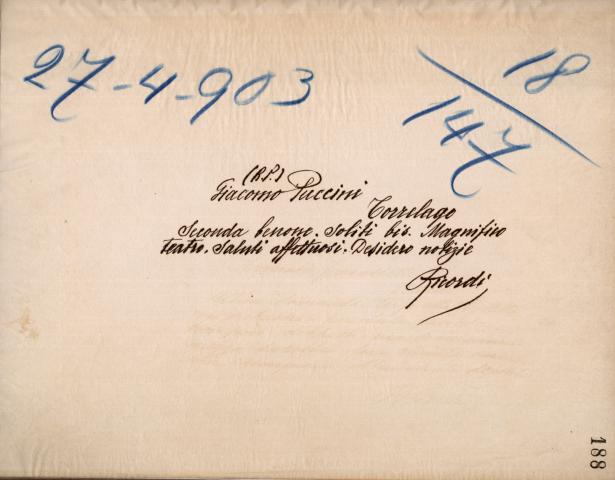 27-4-903
18
147
(R.P.)
Giacomo Puccini
Torrelago
Seconda benone. Soliti bis. Magnifico
teatro. Saluti affettuosi. Desidero notizie
Ricordi
188